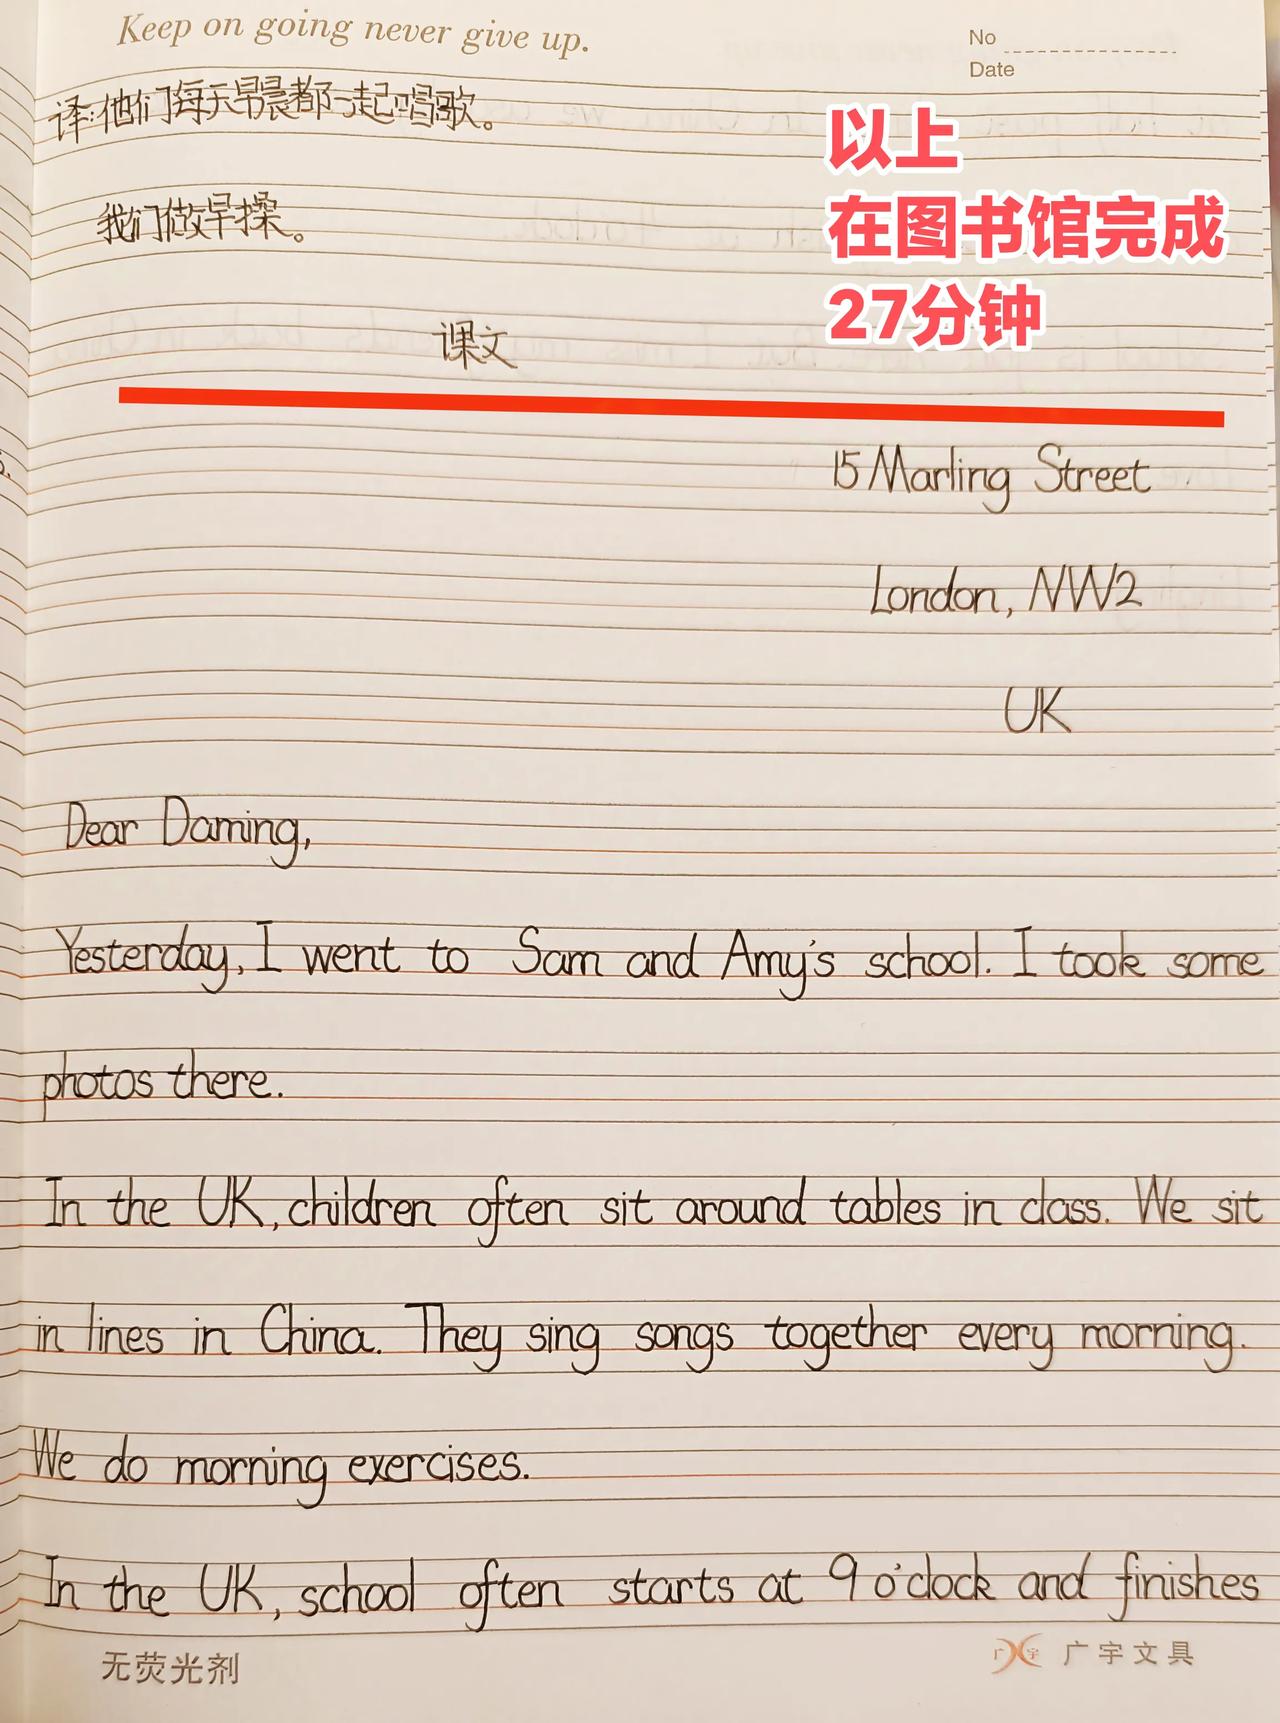 Keep on going never give up.
No
Date
译:他们每天早晨都一起唱歌。
以上
在图书馆完成
27分钟
我们做早操。
课文
15 Marling Street
London, NW2
UK
Dear Daming,
Yesterday, I went to Sam and Amy's school. I took some
photos there.
In the UK, children often sit around tables in class. We sit
in lines in China. They sing songs together every morning.
We do morning exercises.
In the UK, school often starts at 9 o'clock and finishes
无荧光剂
广宇文具